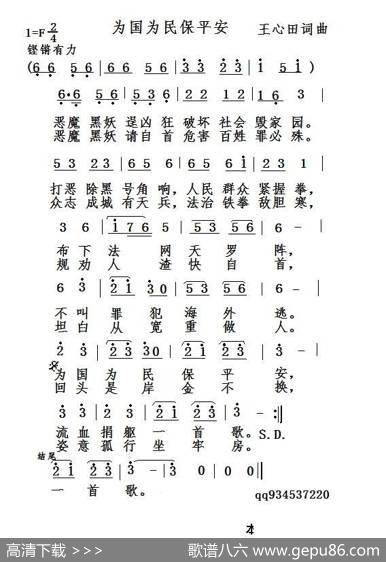 为国为民保平安 王心田词曲
1=F 2/4
铿锵有力
(66 56 | 66 56 | 33 23 | 1 51)
6·6 56 | 66 56 | 33 23 | 1 51
恶魔 黑妖 逞凶 狂 破坏 社会 毁家 园。
恶魔 黑妖 请自 首 危害 百姓 罪必 殊。
53 23 | 65 6 | 65 61 | 23 1
打恶 除黑 号角 响，人民 群众 紧握 拳，
众志 成城 有天 兵，法治 铁拳 敌胆 寒，
3 6 | 176 5 | 53 56 | 53 56
布 下 法 网 天 罗 阵，
规 劝 人 渣 快 自 首，
6 3 | 21 30 | 23 13 | 2 -
不 叫 罪 犯 海 外 逃。
坦 白 从 宽 重 做 人。
2 3 | 23 30 | 221 23 | 3 -
为 国 为 民 保 平 安，
回 头 是 岸 金 不 换，
3 3 | 21 23 | 21 23 | 2 - :||
流 血 捐 躯 一 首 歌。S.D.
姿 意 孤 行 坐 牢 房。
结尾
21 23 | 3 - | 3 0 | 0 0 ||
一 首 歌。
qq934537220
高清下载 >>>
歌谱八六 www.gepu86.com